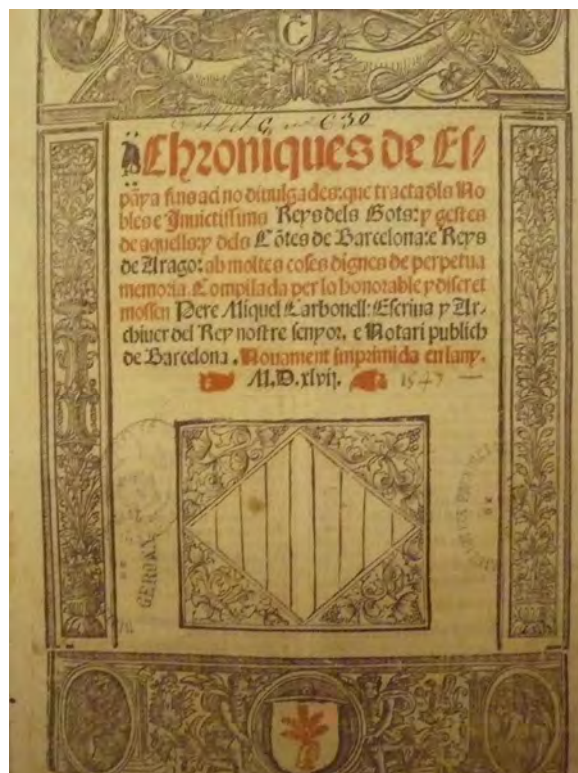 C
630
Chroniques de Es⸗
pãya fins aci no diuulgades: que tracta dls No
bles e Inuictissims Reys dels Gots: y gestes
de aquells: y dels Cõtes de Barcelona: e Reys
de Arago: ab moltes coses dignes de perpetua
memoria. Compilada per lo honorable y discret
mossen Pere Miquel Carbonell: Escriua y Ar⸗
chiuer del Rey nostre senyor. e Notari publich
de Barcelona. Nouament imprimida en lany.
M.D.xlvij. 1547